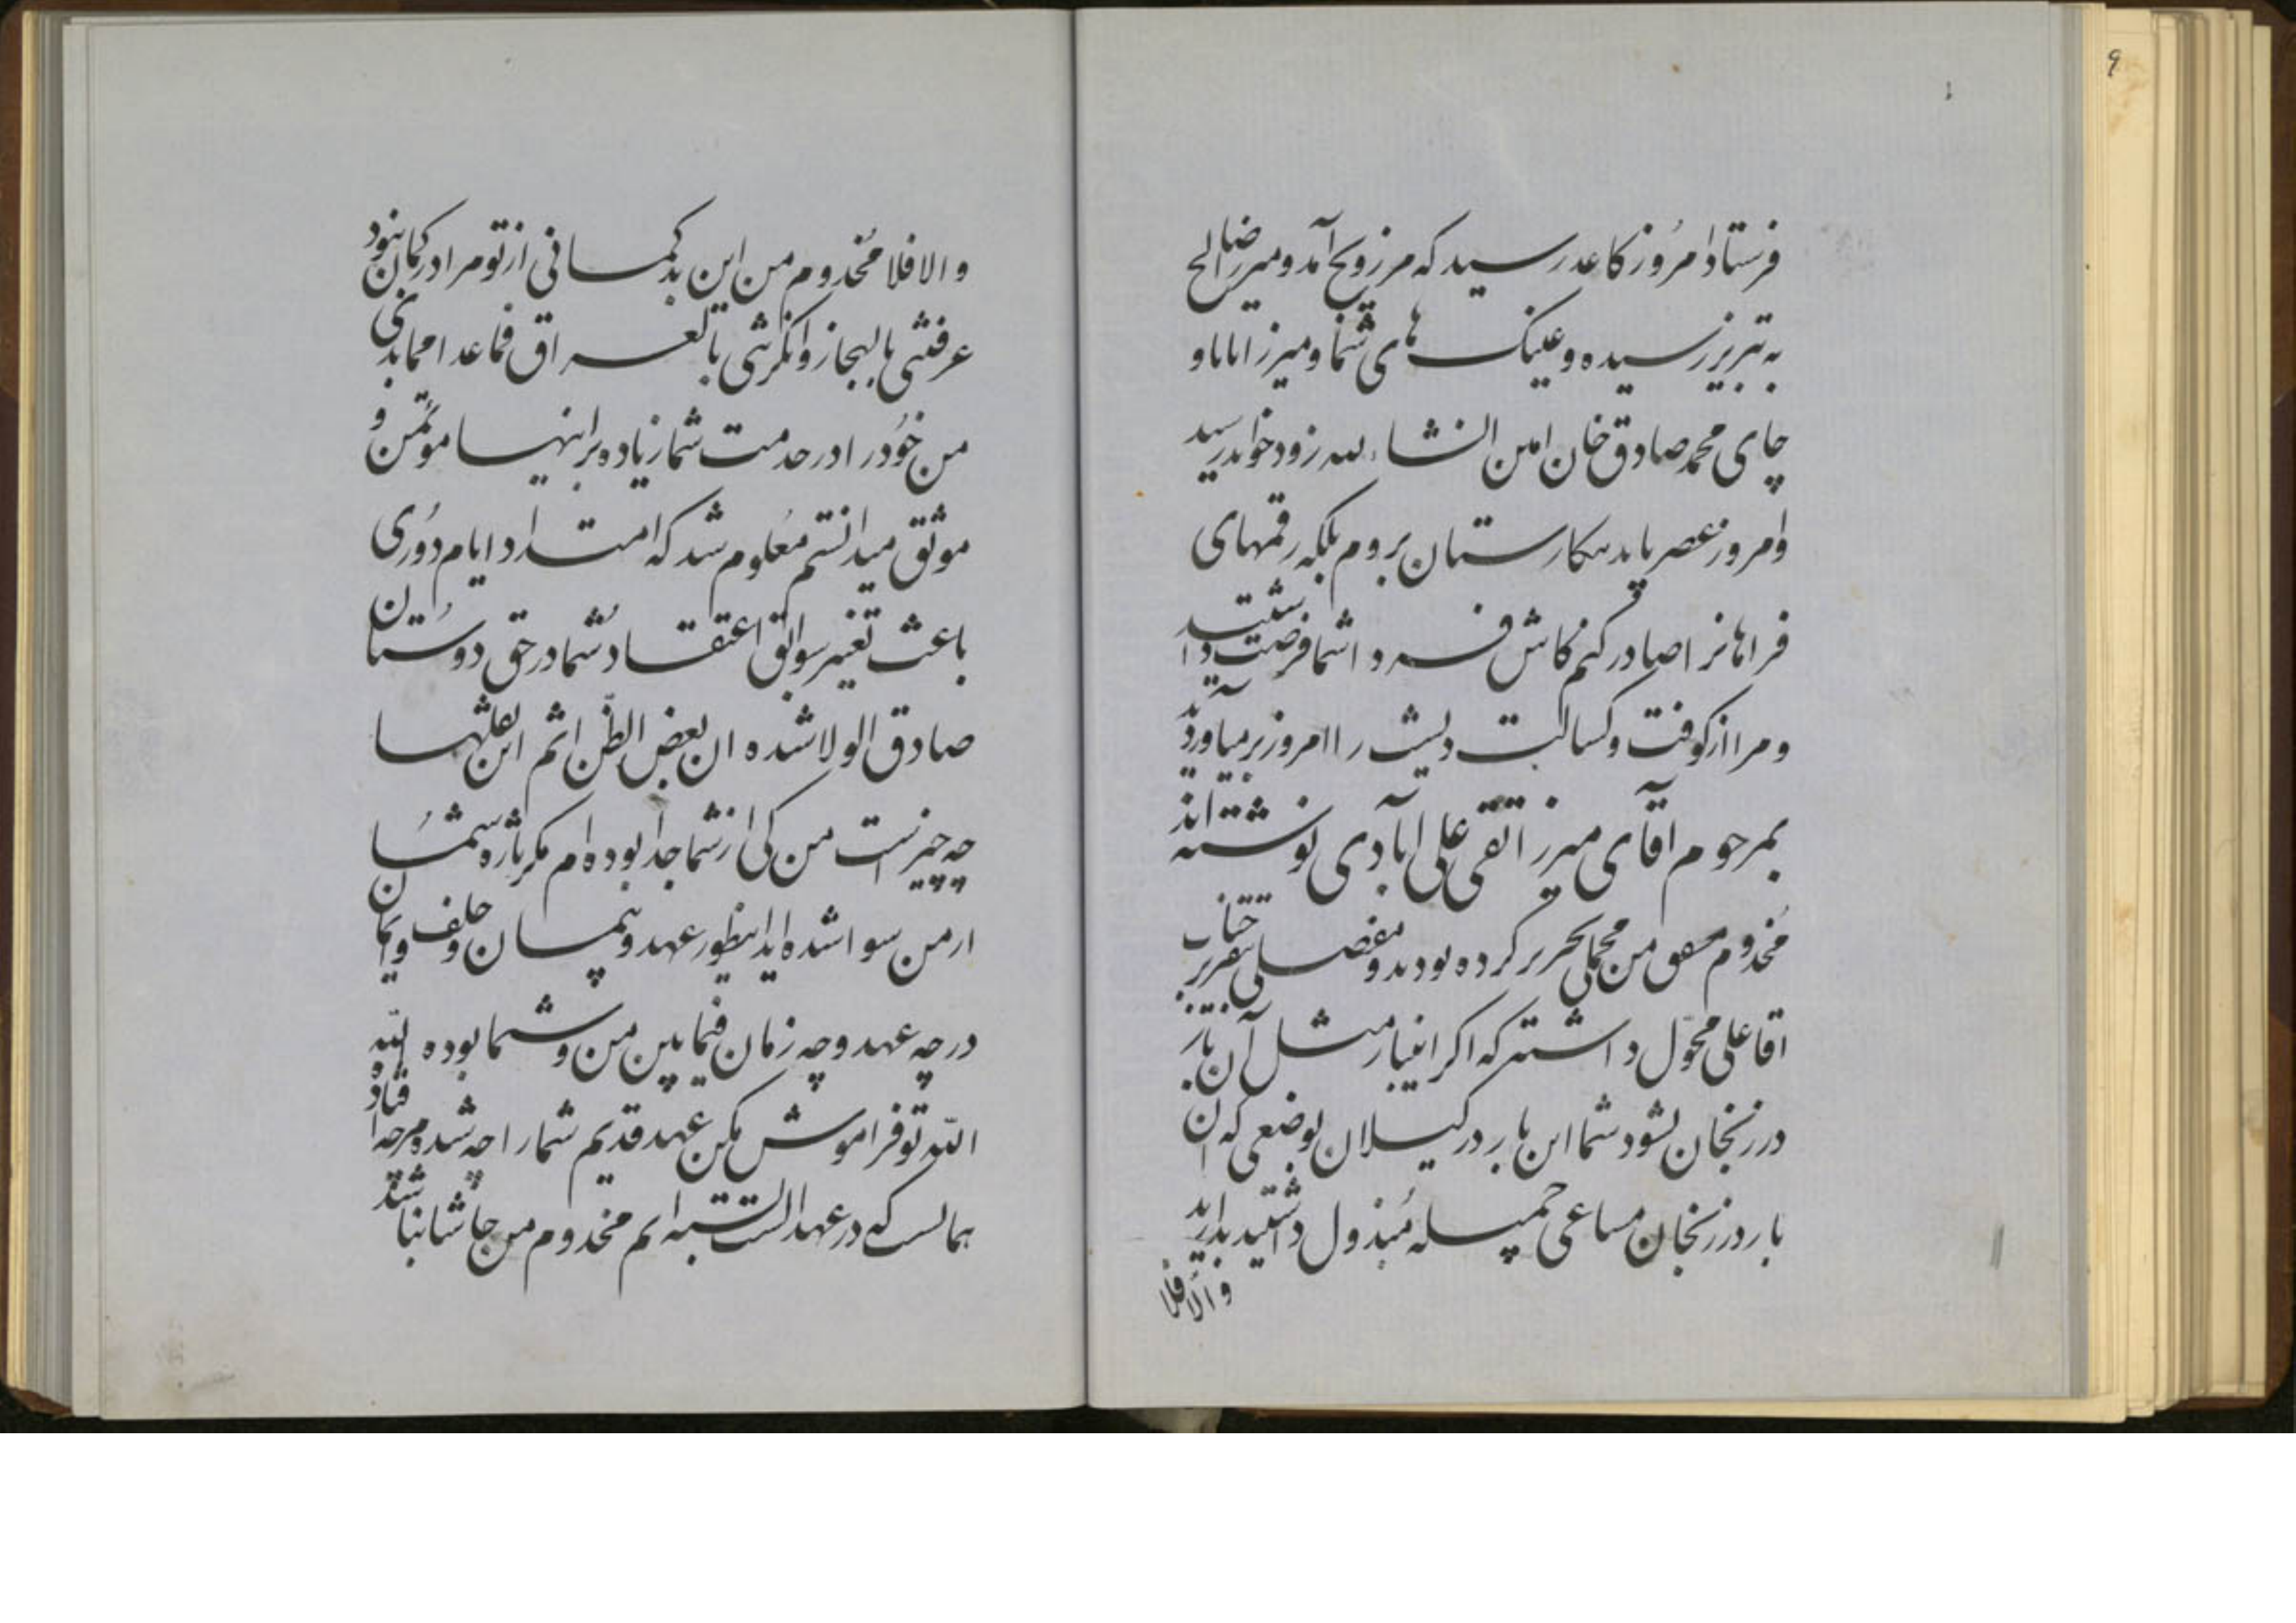 ۹
فرستاد امروز کاغد رسید که مرزویج آمد و میرزا صالح
به تبریز رسیده و عینک های شما و میرزا بابا و
چای محمد صادق خان امین انشاء الله زود خواهد رسید
و امروز عصر باید بنکارستان بروم بلکه رقمهای
فراهانرا صادر کنم کاش فردا شما فرصت داشتید
و مرا از کوفت و کسالت دیشب را امروز بر میاوردید
بمرحوم آقای میرزا تقی علی آبادی نوشته اند
مخدوم مشفق من مجملی تحریر کرده بودید و مفصلی بتقریر جناب
آقا علی محول داشته که اکر اینبار مثل آن بار
در زنجان نشود شما این بار در کیلان بوضعی که آن
بار در زنجان مساعی جمیله مبذول داشتید بدارید
والا فلا
والا فلا مخدوم من این بدکمانی از تو مرا در کمان نبود
عرفتنی بالحجاز وانکرتنی بالعراق فما عدا مما بدا
من خود را در خدمت شما زیاده بر اینها موتمن و
موثق میدانستم معلوم شد که امتداد ایام دوری
باعث تغییر سوابق اعتقاد شما در حق دوستان
صادق الولا شده ان بعض الظن اثم این
چه چیز است من کی از شما جدا بوده ام مکر باره شما
از من سوا شده اید اینطور عهد و پیمان و حلف و ایمان
در چه عهد و چه زمان فیما بین من و شما بوده لله
الله تو فراموش مکن عهد قدیم شما را چه شده و مرا چه افتاد
همانست که در عهد الست بسته ایم مخدوم من حاشا نباشد